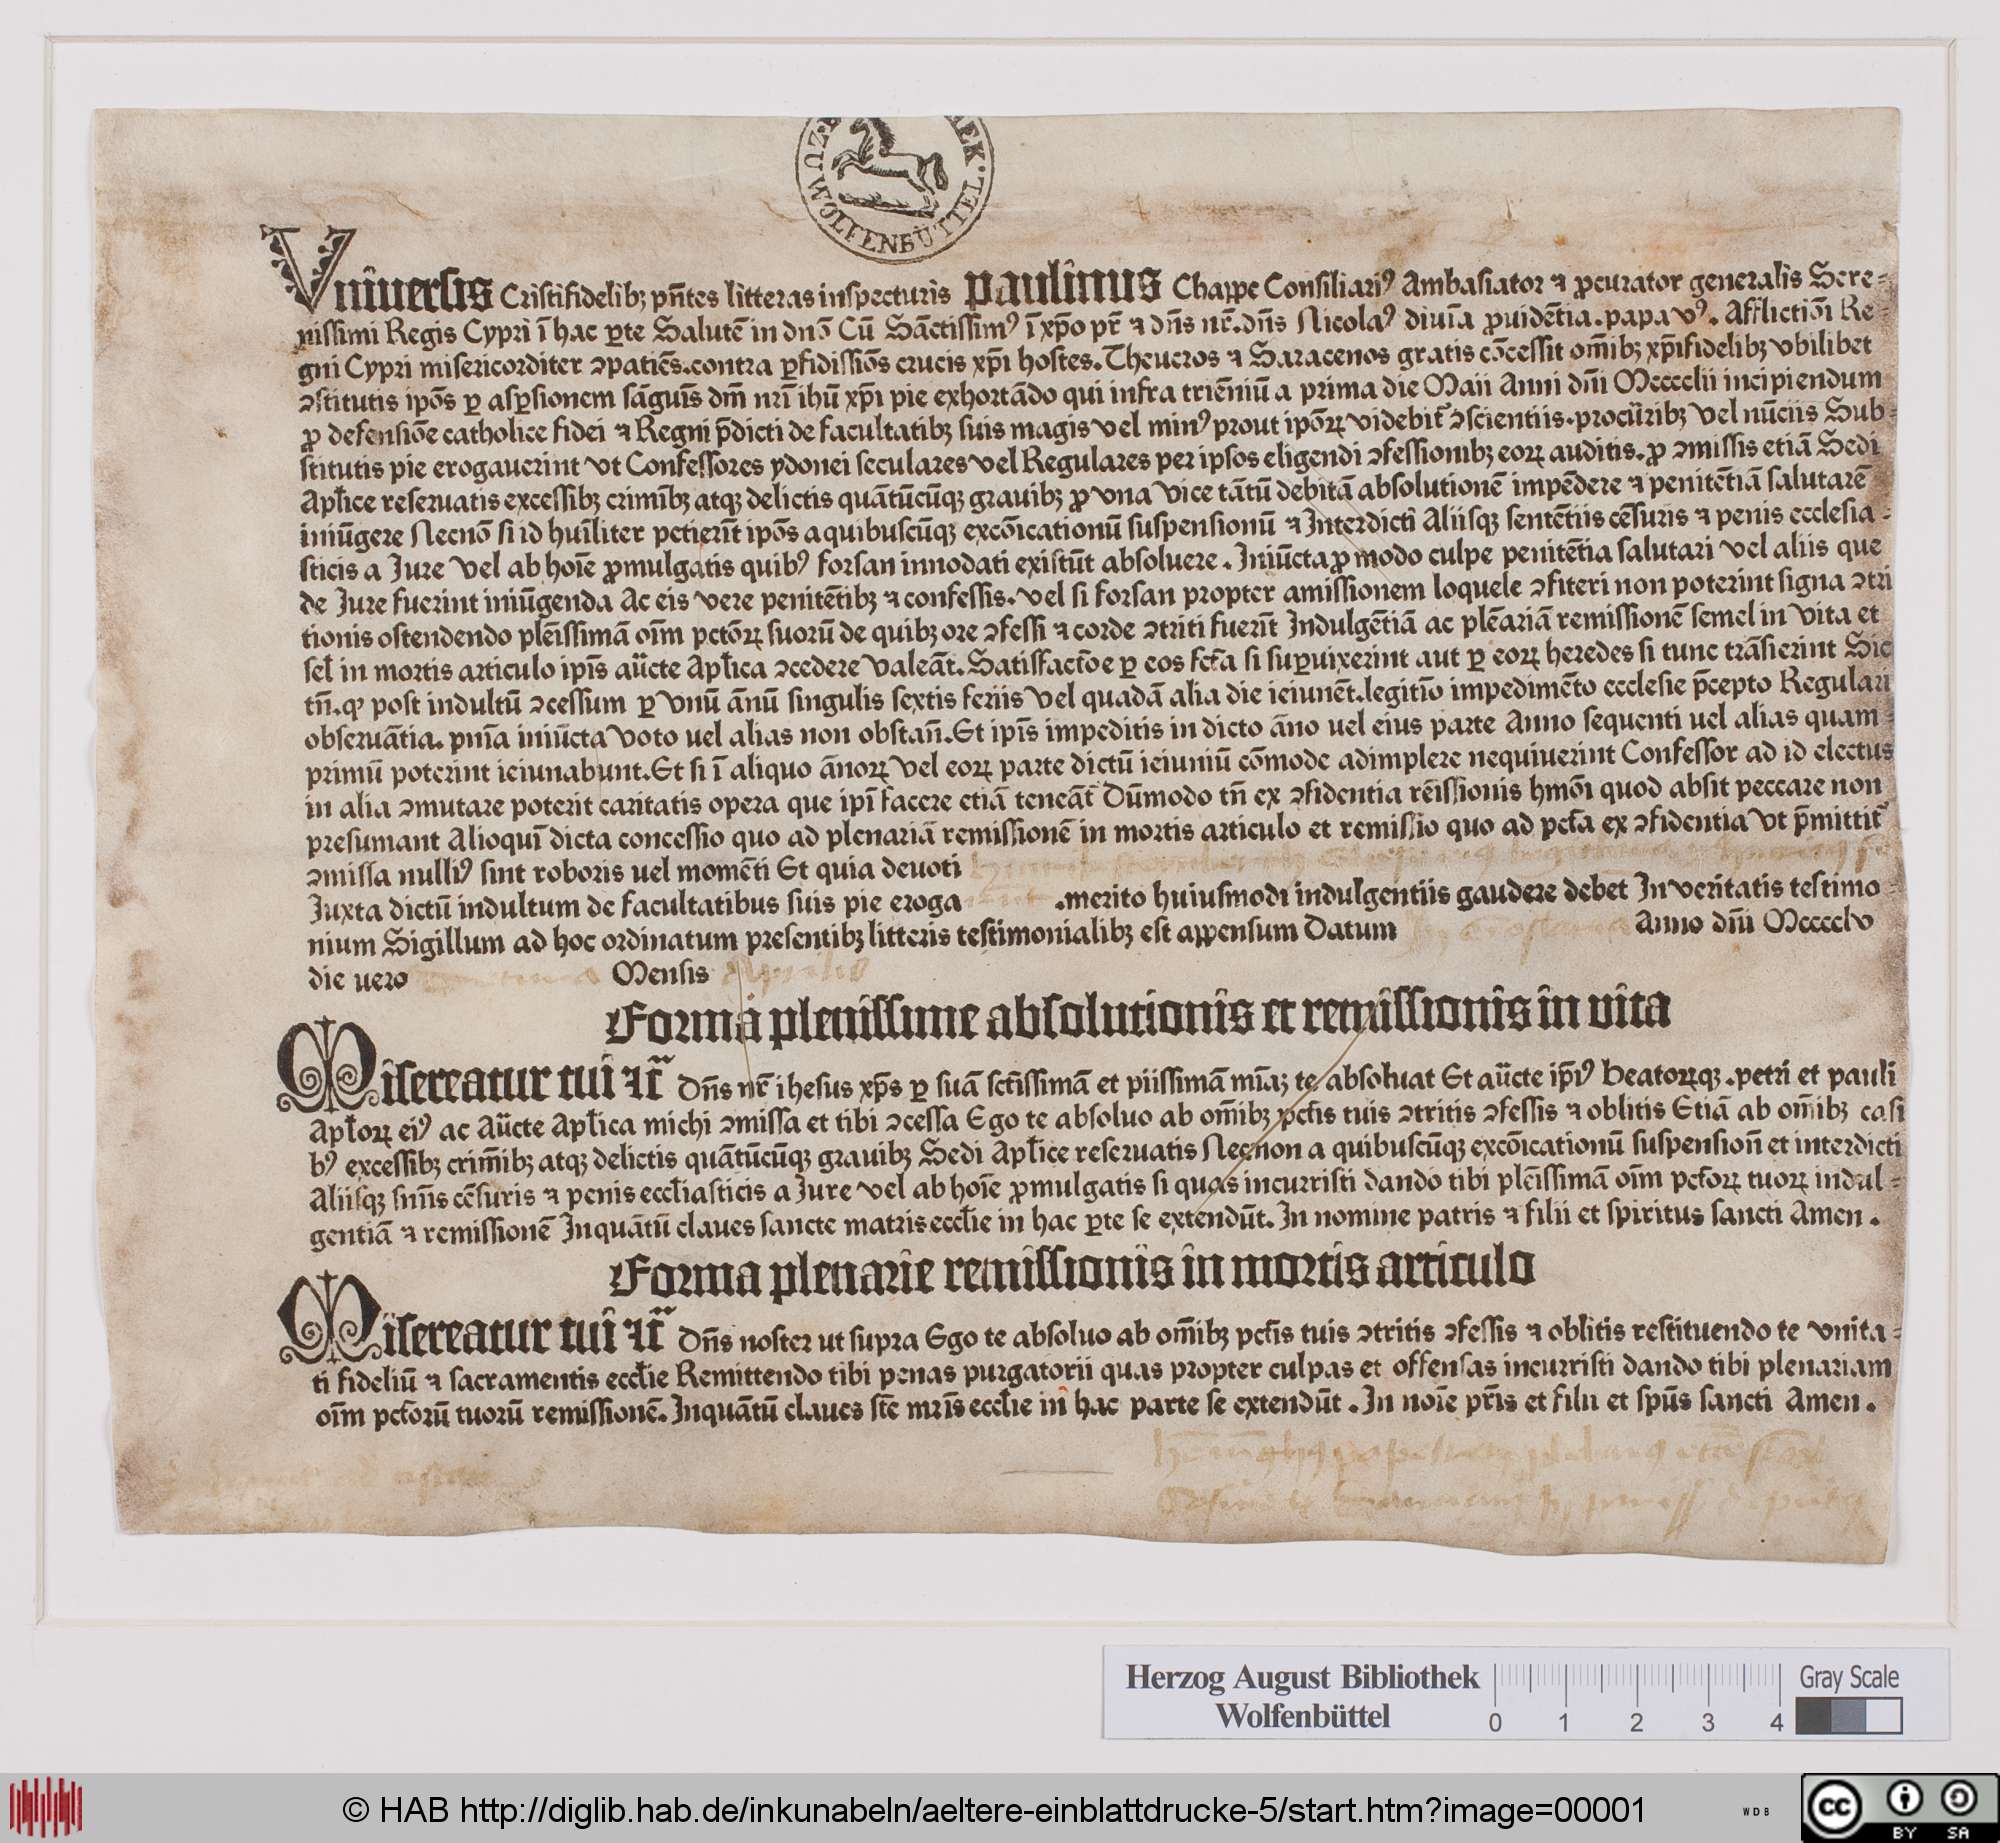 ZU WOLFENBÜTTEL.
Vniuersis Cristifidelibꝫ pn̄tes litteras inspecturis Paulinus Chappe Consiliariꝰ Ambasiator ⁊ ꝓcurator generalis Sere-
nissimi Regis Cypri ī hac ꝑte Salutē in dnō Cū Sāctissimꝰ ī xp̄o pr̄ ⁊ dn̄s nr̄. dn̄s Nicolaꝰ diuīa ꝓuidētia. papa vꝰ. Afflictiōi Re-
gni Cypri misericorditer ↄpatiēs. contra ꝑfidissiōs crucis xp̄i hostes. Theucros ⁊ Saracenos gratis cōcessit om̄ibꝫ xp̄ifidelibꝫ vbilibet
ↄstitutis ipōs ꝑ aspsionem sāguīs dm̄ nrī ihū xp̄i pie exhortādo qui infra triēniū a prima die Maii Anni dn̄i Mcccclii incipiendum
ꝓ defensiōe catholice fidei ⁊ Regni p̄dicti de facultatibꝫ suis magis vel minꝰ prout ipōꝝ videbit̄ ↄscientiis. procūribꝫ vel nūciis Sub-
stitutis pie erogauerint vt Confessores ydonei seculares vel Regulares per ipsos eligendi ↄfessionibꝫ eoꝝ auditis. ꝓ ↄmissis etiā Sedi
Apl̄ice reseruatis excessibꝫ crimībꝫ atqꝫ delictis quātūcūqꝫ grauibꝫ ꝓ vna vice tātū debitā absolutionē impēdere ⁊ penitētiā salutarē
iniūgere Necnō si id huīliter petierīt ipōs a quibuscūqꝫ excōicationū suspensionū ⁊ Interdicti Aliisqꝫ sentētiis cēsuris ⁊ penis ecclesia-
sticis a Jure vel ab hoīe ꝓmulgatis quibꝰ forsan innodati existūt absoluere. Iniūcta ꝓ modo culpe penitētia salutari vel aliis que
de Jure fuerint iniūgenda Ac eis vere penitētibꝫ ⁊ confessis. vel si forsan propter amissionem loquele ↄfiteri non poterint signa ↄtri
tionis ostendendo plēissimā oīm pctōꝝ suorū de quibꝫ ore ↄfessi ⁊ corde ↄtriti fuerīt Indulgētiā ac plēariā remissionē semel in vita et
sel̄ in mortis articulo ipīs aūcte Apl̄ica ↄcedere valeāt. Satisfactōe ꝑ eos fct̄a si suꝑuixerint aut ꝑ eoꝝ heredes si tunc trāsierint Sic
tn̄. qꝫ post indultū ↄcessum ꝑ vnū ānū singulis sextis feriis vel quadā alia die ieiunēt. legitīo impedimēto ecclesie p̄cepto Regulari
obseruātia. pnīa iniūcta voto uel alias non obstan̄. Et ipīs impeditis in dicto āno uel eius parte Anno sequenti uel alias quam-
primū poterint ieiunabunt. Et si ī aliquo ānoꝝ vel eoꝝ parte dictū ieiuniū cōmode adimplere nequiuerint Confessor ad id electus
in alia ↄmutare poterit caritatis opera que ipī facere etiā teneāt̄ Dūmodo tn̄ ex ↄfidentia rēissionis hmōi quod absit peccare non
presumant Alioquī dicta concessio quo ad plenariā remissionē in mortis articulo et remissio quo ad pct̄a ex ↄfidentia vt p̄mittit̄
ↄmissa nulliꝰ sint roboris uel momēti Et quia deuoti
Juxta dictū indultum de facultatibus suis pie eroga .merito huiusmodi indulgentiis gaudere debet In veritatis testimo-
nium Sigillum ad hoc ordinatum presentibꝫ litteris testimonialibꝫ est appensum Datum Anno dn̄i Mcccclv
die uero Mensis Aprilis
Forma plenissime absolutionis et remissionis in vita
Misereatur tui ⁊c̄ Dn̄s nr̄ ihesus xp̄s ꝑ suā sct̄issimā et piissimā mīaꝫ te absoluat Et aūcte ip̄iꝰ beatoꝝqꝫ. petri et pauli
Apl̄oꝝ eiꝰ ac Aūcte Apl̄ica michi ↄmissa et tibi ↄcessa Ego te absoluo ab om̄ibꝫ pct̄is tuis ↄtritis ↄfessis ⁊ oblitis Etiā ab om̄ibꝫ casi
bꝰ excessibꝫ crimībꝫ atqꝫ delictis quātūcūqꝫ grauibꝫ Sedi Apl̄ice reseruatis Necnon a quibuscūqꝫ excōicationū suspension̄ et interdicti
Aliisqꝫ snīis cēsuris ⁊ penis eccl̄iasticis a Jure vel ab hoīe ꝓmulgatis si quas incurristi dando tibi plēissimā oīm pctoꝝ tuoꝝ indul-
gentiā ⁊ remissionē Inquātū claues sancte matris eccl̄ie in hac ꝑte se extendūt. In nomine patris ⁊ filii et spiritus sancti Amen.
Forma plenarie remissionis in mortis articulo
Misereatur tui ⁊c̄ Dn̄s noster ut supra Ego te absoluo ab om̄ibꝫ pct̄is tuis ↄtritis ↄfessis ⁊ oblitis restituendo te vnita-
ti fideliū ⁊ sacramentis eccl̄ie Remittendo tibi penas purgatorii quas propter culpas et offensas incurristi dando tibi plenariam
oīm pctorū tuorū remissionē. Inquātū claues stē mrīs eccl̄ie in hac parte se extendūt. In noīe pr̄is et filii et spūs sancti Amen.
Herzog August Bibliothek
Wolfenbüttel
0 1 2 3 4
Gray Scale
© HAB http://diglib.hab.de/inkunabeln/aeltere-einblattdrucke-5/start.htm?image=00001
WDB
cc BY SA